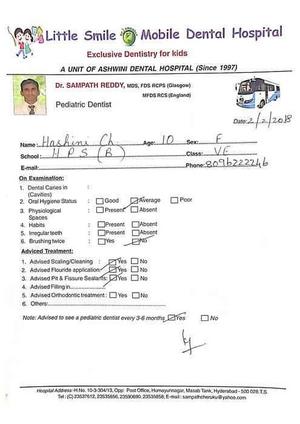 Little Smile Mobile Dental Hospital
Exclusive Dentistry for kids
A UNIT OF ASHWINI DENTAL HOSPITAL (Since 1997)
Dr. SAMPATH REDDY, MDS, FDS RCPS (Glasgow)
MFDS RCS (England)
Pediatric Dentist
Date: 2/2/2018
Name: Hashini Ch. Age: 10 Sex: F
School: HPS (R) Class: VF
E-mail: Phone: 8096222246
On Examination:
1. Dental Caries in (Cavities) :
2. Oral Hygiene Status : Good Average Poor
3. Physiological Spaces : Present Absent
4. Habits : Present Absent
5. Irregular teeth : Present Absent
6. Brushing twice : Yes No
Adviced Treatment:
1. Advised Scaling/Cleaning : Yes No
2. Advised Flouride application : Yes No
3. Advised Pit & Fissure Sealants : Yes No
4. Advised Filling in
5. Advised Orthodontic treatment : Yes No
6. Others:
Note: Advised to see a pediatric dentist every 3-6 months Yes No
Hospital Address: H.No. 10-3-304/13, Opp: Post Office, Humayunnagar, Masab Tank, Hyderabad - 500 028. T.S.
Tel: (C) 23537612, 23535656, 23590690, 23535858, E-mail: sampathcheruku@yahoo.com